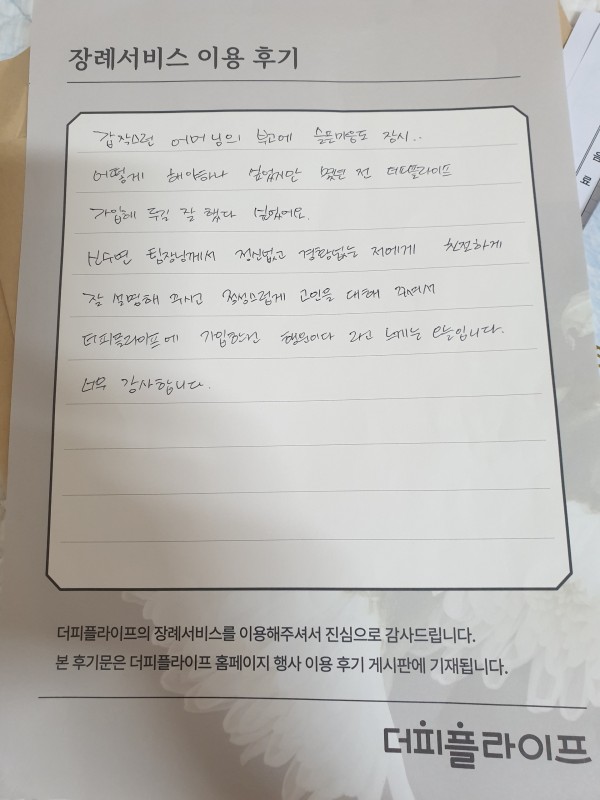 장례서비스 이용 후기
갑작스런 어머님의 부고에 슬픈마음도 잠시..
어떻게 해야하나 싶었지만 몇년 전 더피플라이프
가입해 두길 잘 했다 싶었어요.
신수연 팀장님께서 정신없고 경황없는 저에게 친절하게
잘 설명해 주시고 정성스럽게 고인을 대해 주셔서
더피플라이프에 가입한건 행운이다 라고 느끼는 오늘입니다.
너무 감사합니다.
더피플라이프의 장례서비스를 이용해주셔서 진심으로 감사드립니다.
본 후기문은 더피플라이프 홈페이지 행사 이용 후기 게시판에 기재됩니다.
더피플라이프
음료